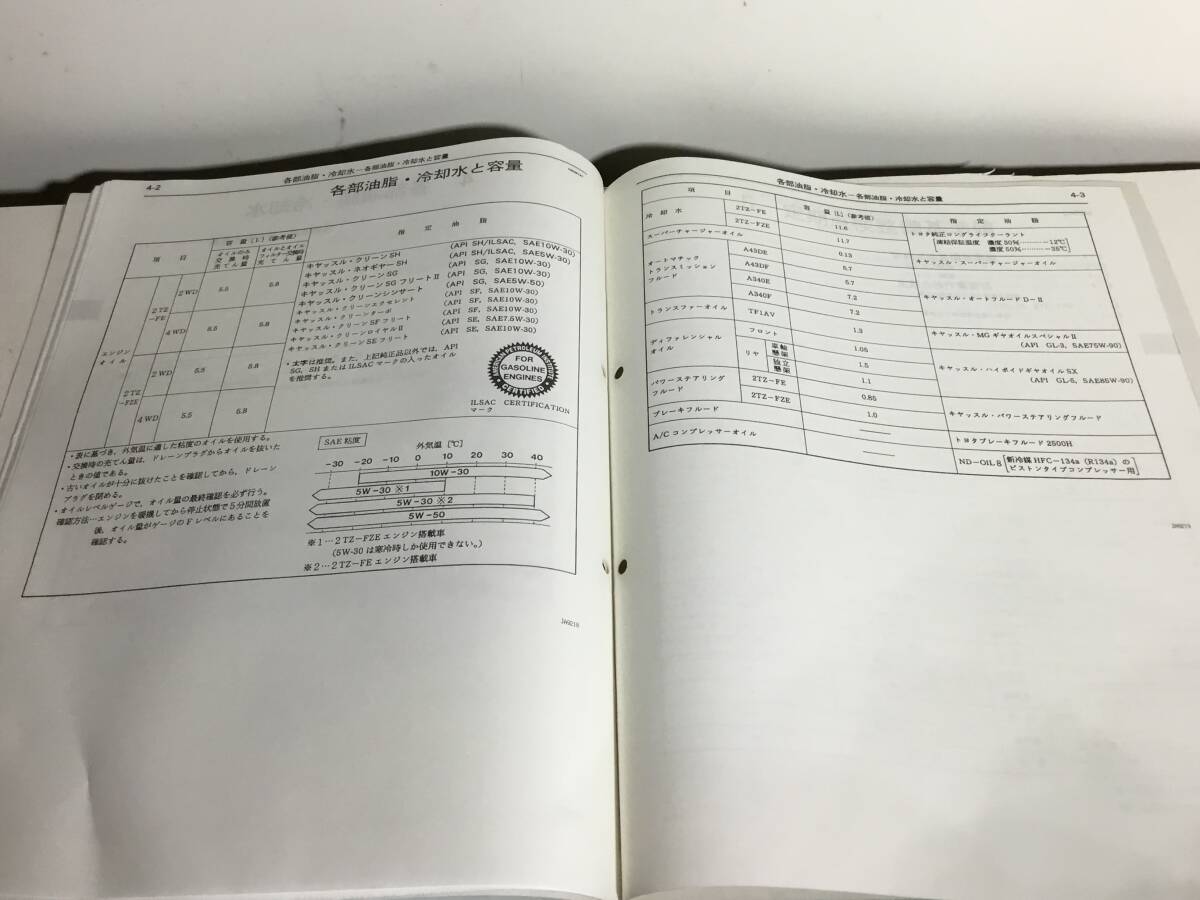 4-2
各部油脂・冷却水－各部油脂・冷却水と容量
各部油脂・冷却水と容量
項 目
容 量〔L〕(参考値)
オイルのみ交換時充てん量
オイルとオイルフィルター交換時充てん量
指 定 油 脂
エンジンオイル
2TZ-FE
2WD
5.5
5.8
4WD
5.5
5.8
2TZ-FZE
2WD
5.5
5.8
4WD
5.5
5.8
キヤッスル・クリーンSH (API SH/ILSAC, SAE10W-30)
キヤッスル・ネオギヤーSH (API SH/ILSAC, SAE5W-30)
キヤッスル・クリーンSG (API SG, SAE10W-30)
キヤッスル・クリーンSGフリートⅡ (API SG, SAE10W-30)
キヤッスル・クリーンシンサート (API SG, SAE5W-50)
キヤッスル・クリーンエクセレント (API SF, SAE10W-30)
キヤッスル・クリーンターボ (API SF, SAE10W-30)
キヤッスル・クリーンSFフリート (API SF, SAE10W-30)
キヤッスル・クリーンロイヤルⅡ (API SE, SAE7.5W-30)
キヤッスル・クリーンSEフリート (API SE, SAE10W-30)
・太字は推奨。また、上記純正品以外では、API
SG, SHまたはILSACマークの入ったオイル
を推奨する。
FOR
GASOLINE
ENGINES
CERTIFIED
ILSAC CERTIFICATION
マーク
・表に基づき、外気温に適した粘度のオイルを使用する。
・交換時の充てん量は、ドレーンプラグからオイルを抜いた
ときの値である。
・古いオイルが十分に抜けたことを確認してから、ドレーン
プラグを閉める。
・オイルレベルゲージで、オイル量の最終確認を必ず行う。
確認方法…エンジンを暖機してから停止状態で5分間放置
後、オイル量がゲージのFレベルにあることを
確認する。
SAE粘度
外気温〔℃〕
-30 -20 -10 0 10 20 30 40
10W-30
5W-30 ※1
5W-30 ※2
5W-50
※1…2TZ-FZEエンジン搭載車
(5W-30は寒冷時しか使用できない。)
※2…2TZ-FEエンジン搭載車
JA9218
各部油脂・冷却水－各部油脂・冷却水と容量
4-3
項 目
容 量〔L〕(参考値)
指 定 油 脂
冷 却 水
2TZ-FE
11.6
2TZ-FZE
11.7
トヨタ純正ロングライフクーラント
凍結保証温度 濃度30%………-12℃
濃度50%………-35℃
スーパーチャージャーオイル
0.13
キヤッスル・スーパーチャージャーオイル
オートマチックトランスミッションフルード
A43DE
5.7
A43DF
5.7
A340E
7.2
A340F
7.2
キヤッスル・オートフルードD-Ⅱ
トランスファーオイル
TF1AV
1.2
キヤッスル・MGギヤオイルスペシャルⅡ
(API GL-3, SAE75W-90)
ディファレンシャルオイル
フロント
1.05
リヤ
車軸懸架
1.5
独立懸架
1.1
キヤッスル・ハイポイドギヤオイルSX
(API GL-5, SAE85W-90)
パワーステアリングフルード
2TZ-FE
0.85
2TZ-FZE
1.0
キヤッスル・パワーステアリングフルード
ブレーキフルード
トヨタブレーキフルード2500H
A/Cコンプレッサーオイル
ND-OIL8 新冷媒HFC-134a (R134a) の
ピストンタイプコンプレッサー用
JA9219